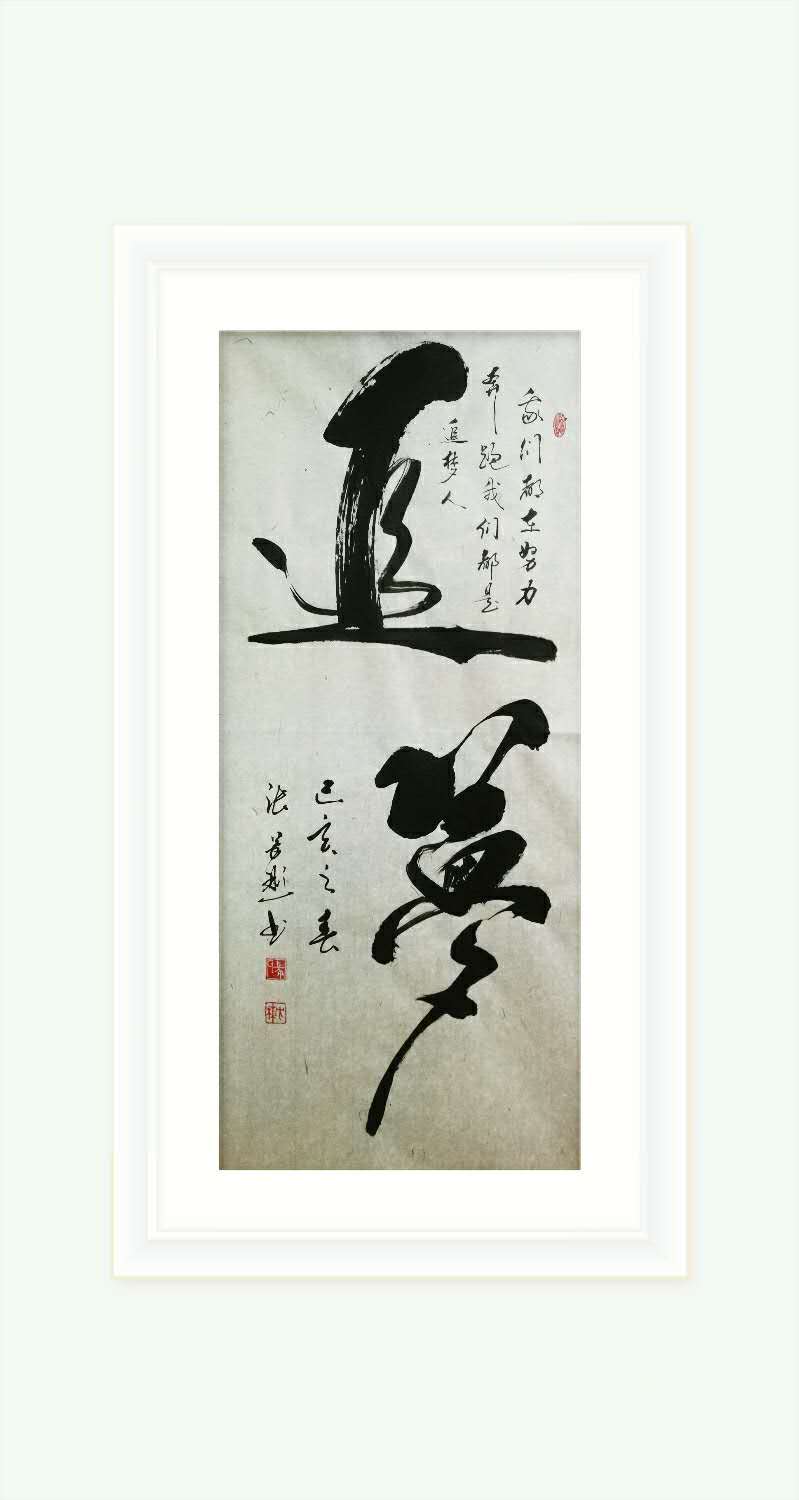 追夢
我们都在努力
奔跑我们都是
追梦人
己亥之春
张
书